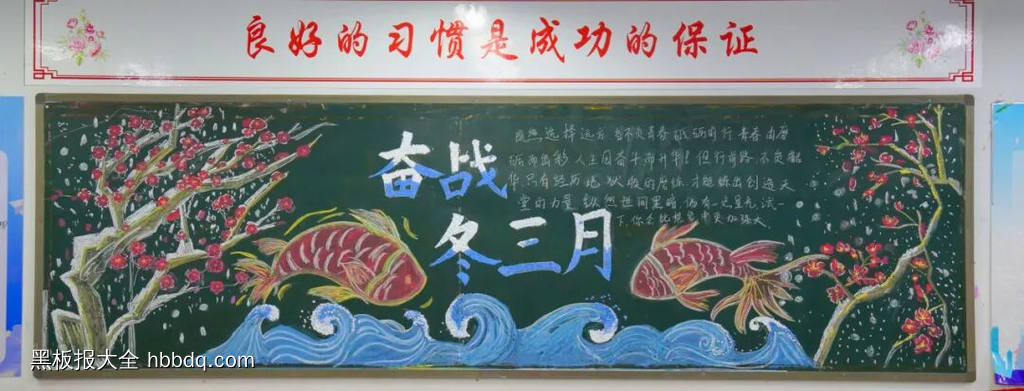 良好的习惯是成功的保证
奋战
冬三月
既然选择远方 当不负青春 砥砺前行 青春由磨
砺而出彩 人生因奋斗而升华! 但行前路 不负韶
华 只有经历地狱般的磨练 才能练出创造天
堂的力量 纵然世间黑暗 仍有一点星光 试一
下,你会比想象中更加强大
黑板报大全 hbbdq.com